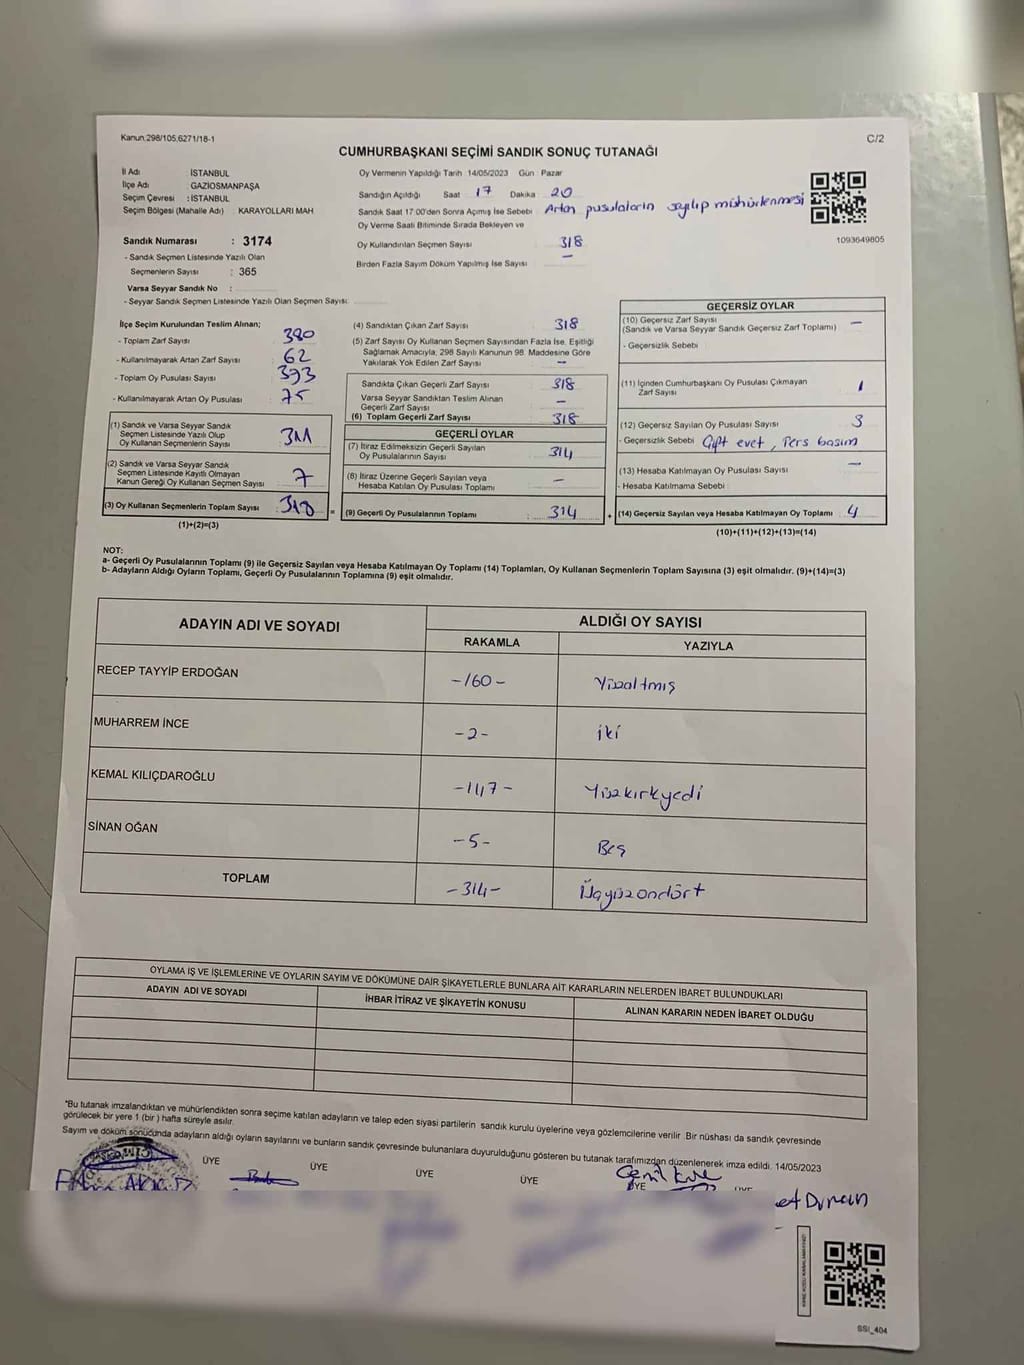 Kanun:298/105,6271/18-1
C/2
CUMHURBAŞKANI SEÇİMİ SANDIK SONUÇ TUTANAĞI
İl Adı : İSTANBUL
İlçe Adı : GAZİOSMANPAŞA
Seçim Çevresi : İSTANBUL
Seçim Bölgesi (Mahalle Adı) : KARAYOLLARI MAH
Oy Vermenin Yapıldığı Tarih 14/05/2023 Gün : Pazar
Sandığın Açıldığı Saat 17 Dakika 20
Sandık Saat 17:00'den Sonra Açımış İse Sebebi Artan pusulaların sayılıp mühürlenmesi
Oy Verme Saati Bitiminde Sırada Bekleyen ve
Oy Kullandırılan Seçmen Sayısı 318
Birden Fazla Sayım Döküm Yapılmış İse Sayısı —
1093649805
Sandık Numarası : 3174
- Sandık Seçmen Listesinde Yazılı Olan
Seçmenlerin Sayısı : 365
Varsa Seyyar Sandık No :
- Seyyar Sandık Seçmen Listesinde Yazılı Olan Seçmen Sayısı:
İlçe Seçim Kurulundan Teslim Alınan;
- Toplam Zarf Sayısı : 380
- Kullanılmayarak Artan Zarf Sayısı : 62
- Toplam Oy Pusulası Sayısı : 393
- Kullanılmayarak Artan Oy Pusulası : 75
(1) Sandık ve Varsa Seyyar Sandık
Seçmen Listesinde Yazılı Olup
Oy Kullanan Seçmenlerin Sayısı : 311
(2) Sandık ve Varsa Seyyar Sandık
Seçmen Listesinde Kayıtlı Olmayan
Kanun Gereği Oy Kullanan Seçmen Sayısı : 7
(3) Oy Kullanan Seçmenlerin Toplam Sayısı : 318
(1)+(2)=(3)
(4) Sandıktan Çıkan Zarf Sayısı 318
(5) Zarf Sayısı Oy Kullanan Seçmen Sayısından Fazla İse, Eşitliği
Sağlamak Amacıyla, 298 Sayılı Kanunun 98. Maddesine Göre
Yakılarak Yok Edilen Zarf Sayısı —
Sandıkta Çıkan Geçerli Zarf Sayısı 318
Varsa Seyyar Sandıktan Teslim Alınan
Geçerli Zarf Sayısı —
(6) Toplam Geçerli Zarf Sayısı 318
GEÇERLİ OYLAR
(7) İtiraz Edilmeksizin Geçerli Sayılan
Oy Pusulalarının Sayısı : 314
(8) İtiraz Üzerine Geçerli Sayılan veya
Hesaba Katılan Oy Pusulası Toplamı : —
= (9) Geçerli Oy Pusulalarının Toplamı : 314
GEÇERSİZ OYLAR
(10) Geçersiz Zarf Sayısı —
(Sandık ve Varsa Seyyar Sandık Geçersiz Zarf Toplamı)
- Geçersizlik Sebebi :
(11) İçinden Cumhurbaşkanı Oy Pusulası Çıkmayan
Zarf Sayısı 1
(12) Geçersiz Sayılan Oy Pusulası Sayısı : 3
- Geçersizlik Sebebi : Çift evet, Ters basım
(13) Hesaba Katılmayan Oy Pusulası Sayısı : —
- Hesaba Katılmama Sebebi :
+ (14) Geçersiz Sayılan veya Hesaba Katılmayan Oy Toplamı : 4
(10)+(11)+(12)+(13)=(14)
NOT:
a- Geçerli Oy Pusulalarının Toplamı (9) ile Geçersiz Sayılan veya Hesaba Katılmayan Oy Toplamı (14) Toplamları, Oy Kullanan Seçmenlerin Toplam Sayısına (3) eşit olmalıdır. (9)+(14)=(3)
b- Adayların Aldığı Oyların Toplamı, Geçerli Oy Pusulalarının Toplamına (9) eşit olmalıdır.
ADAYIN ADI VE SOYADI
ALDIĞI OY SAYISI
RAKAMLA YAZIYLA
RECEP TAYYİP ERDOĞAN -160- Yüzaltmış
MUHARREM İNCE -2- iki
KEMAL KILIÇDAROĞLU -147- Yüzkırkyedi
SİNAN OĞAN -5- Beş
TOPLAM -314- Üçyüzondört
OYLAMA İŞ VE İŞLEMLERİNE VE OYLARIN SAYIM VE DÖKÜMÜNE DAİR ŞİKAYETLERLE BUNLARA AİT KARARLARIN NELERDEN İBARET BULUNDUKLARI
ADAYIN ADI VE SOYADI
İHBAR İTİRAZ VE ŞİKAYETİN KONUSU
ALINAN KARARIN NEDEN İBARET OLDUĞU
*Bu tutanak imzalandıktan ve mühürlendikten sonra seçime katılan adayların ve talep eden siyasi partilerin sandık kurulu üyelerine veya gözlemcilerine verilir. Bir nüshası da sandık çevresinde
görülecek bir yere 1 (bir) hafta süreyle asılır.
Sayım ve döküm sonucunda adayların aldığı oyların sayılarını ve bunların sandık çevresinde bulunanlara duyurulduğunu gösteren bu tutanak tarafımızdan düzenlenerek imza edildi. 14/05/2023
ÜYE ÜYE ÜYE ÜYE ÜYE
SSI_404